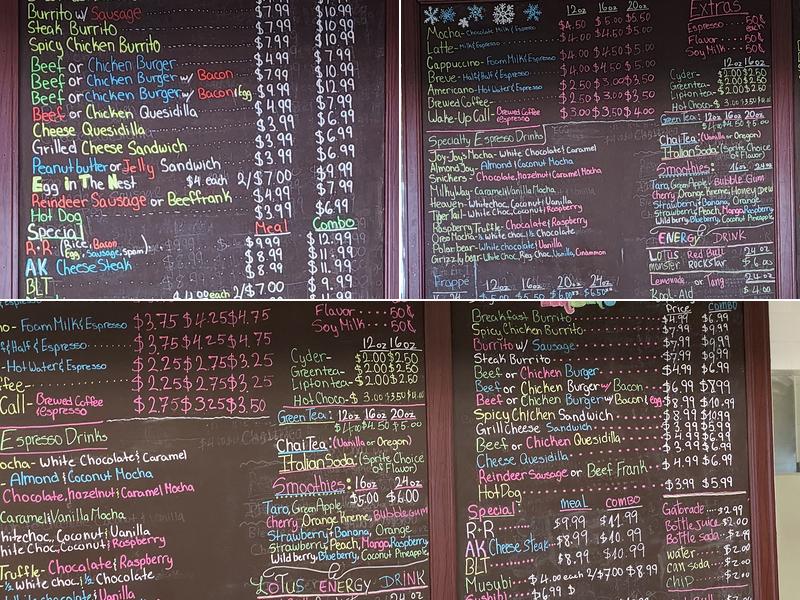 Burrito w/ Sausage $7.99 $10.99
Steak Burrito $7.99 $10.99
Spicy Chicken Burrito $7.99 $10.99
Beef or Chicken Burger $4.99 $7.99
Beef or Chicken Burger w/ Bacon $7.99 $10.99
Beef or Chicken Burger w/ Bacon & Egg $9.99 $12.99
Beef or Chicken Quesidilla $4.99 $7.99
Cheese Quesidilla $3.99 $6.99
Grilled Cheese Sandwich $3.99 $6.99
Peanut butter or Jelly Sandwich $3.99 $6.99
Egg in The Nest $4. each 2/$7.00
Reindeer Sausage or Beef frank $4.99 $7.99
Hot Dog $3.99 $6.99
Special Meal Combo
R•R• (Rice, Bacon, Egg, Sausage, Spam) $9.99 $12.99
AK Cheese Steak $8.99 $11.99
BLT $8.99 $11.99
$4.00 each 2/7.00
12oz 16oz 20oz
Mocha- Chocolate Milk & Espresso $4.50 $5.00 $5.50
Latte- Milk & Espresso $4.00 $4.50 $5.00
Cappuccino- Foam Milk & Espresso $4.00 $4.50 $5.00
Breve- Half & Half & Espresso $4.00 $4.50 $5.00
Americano- Hot Water & Espresso $2.50 $3.00 $3.50
Brewed Coffee- $2.50 $3.00 $3.50
Wake-Up Call- Brewed Coffee & espresso $3.00 $3.50 $4.00
Specialty Espresso Drinks
Joy-Joys Mocha- White Chocolate & Caramel
Almond Joy- Almond & Coconut Mocha
Snickers- Chocolate, hazelnut & Caramel Mocha
Milky Way- Caramel & Vanilla Mocha
Heaven- White choc, Coconut & Vanilla
Tiger Tail- White Choc, Coconut & Raspberry
Raspberry Truffle- Chocolate & Raspberry
Oreo Mocha- ½ White choc. & ½ Chocolate
Polar bear- White chocolate & Vanilla
Grizzly bear- White Choc, Reg Choc, Vanilla, Cinnamon
Frappé 12oz 16oz 20oz 24oz
$5.00 $5.50 $6.00 $6.50
Extras
Espresso.... 50¢ each
Flavor.... 50¢
Soy Milk... 50¢
12oz 16oz
Cyder- $2.00 $2.50
Greentea- $2.00 $2.50
Lipton tea- $2.00 $2.50
Hot Choco-$ 3.00
Green Tea: 12oz 16oz 20oz
$4.00 $4.50 $5.00
Chai Tea: (Vanilla or Oregon)
Italian Soda: (Sprite Choice of Flavor)
Smoothies: 16oz 24oz
Taro, Green Apple, Bubble Gum
Cherry, Orange Kreme, Honey Dew
Strawberry & Banana, Orange
Strawberry, Peach, Mango Raspberry
Wild berry, Blueberry, Coconut Pineapple
ENERGY DRINK
LOTUS Red Bull 24oz
monster ROCKSTAR $6.00
Lemonade or Tang 24oz
Kool-Aid $4.00
no- Foam Milk & Espresso $3.75 $4.25 $4.75
f & Half & Espresso $3.75 $4.25 $4.75
-Hot Water & Espresso $2.25 $2.75 $3.25
fee- $2.25 $2.75 $3.25
Call- Brewed Coffee & espresso $2.75 $3.25 $3.50
Espresso Drinks
ocha- White Chocolate & Caramel
- Almond & Coconut Mocha
Chocolate, hazelnut & Caramel Mocha
Caramel & Vanilla Mocha
hite choc, Coconut & Vanilla
hite Choc, Coconut & Raspberry
Truffle- Chocolate & Raspberry
½ White choc. & ½ Chocolate
White chocolate & Vanilla
Flavor.... 50¢
Soy Milk... 50¢
12oz 16oz
Cyder- $2.00 $2.50
Greentea- $2.00 $2.50
Lipton tea- $2.00 $2.50
Hot Choco-$ 3.00
Green Tea: 12oz 16oz 20oz
$4.00 $4.50 $5.00
Chai Tea: (Vanilla or Oregon)
Italian Soda: (Sprite Choice of Flavor)
Smoothies: 16oz 24oz
$5.00 $6.00
Taro, Green Apple, Bubble Gum
Cherry, Orange Kreme,
Strawberry & Banana, Orange
Strawberry, Peach, Mango Raspberry
Wild berry, Blueberry, Coconut Pineapple
LOTUS ENERGY DRINK
24oz
Price COMBO
Breakfast Burrito $4.99 $6.99
Spicy Chicken Burrito $7.99 $9.99
Burrito w/ Sausage $7.99 $9.99
Steak Burrito $7.99 $9.99
Beef or Chicken Burger $4.99 $6.99
Beef or Chicken Burger w/ Bacon $6.99 $8.99
Beef or Chicken Burger w/ Bacon & egg $8.99 $10.99
Spicy Chicken Sandwich $8.99 $10.99
Grill Cheese Sandwich $3.99 $5.99
Beef or Chicken Quesidilla $4.99 $6.99
Cheese Quesidilla $3.99 $6.99
Reindeer Sausage or Beef Frank $4.99 $6.99
Hot Dog $3.99 $5.99
Special: meal COMBO
R•R $9.99 $11.99
AK Cheese Steak $8.99 $10.99
BLT $8.99 $10.99
Musubi $4.00 each 2/$7.00 $8.99
$6.99
Gatorade... $2.99
Bottle juice $2.00
Bottle soda.. $2.99
water..... $2.00
can soda.. $2.00
chip..... $2.00